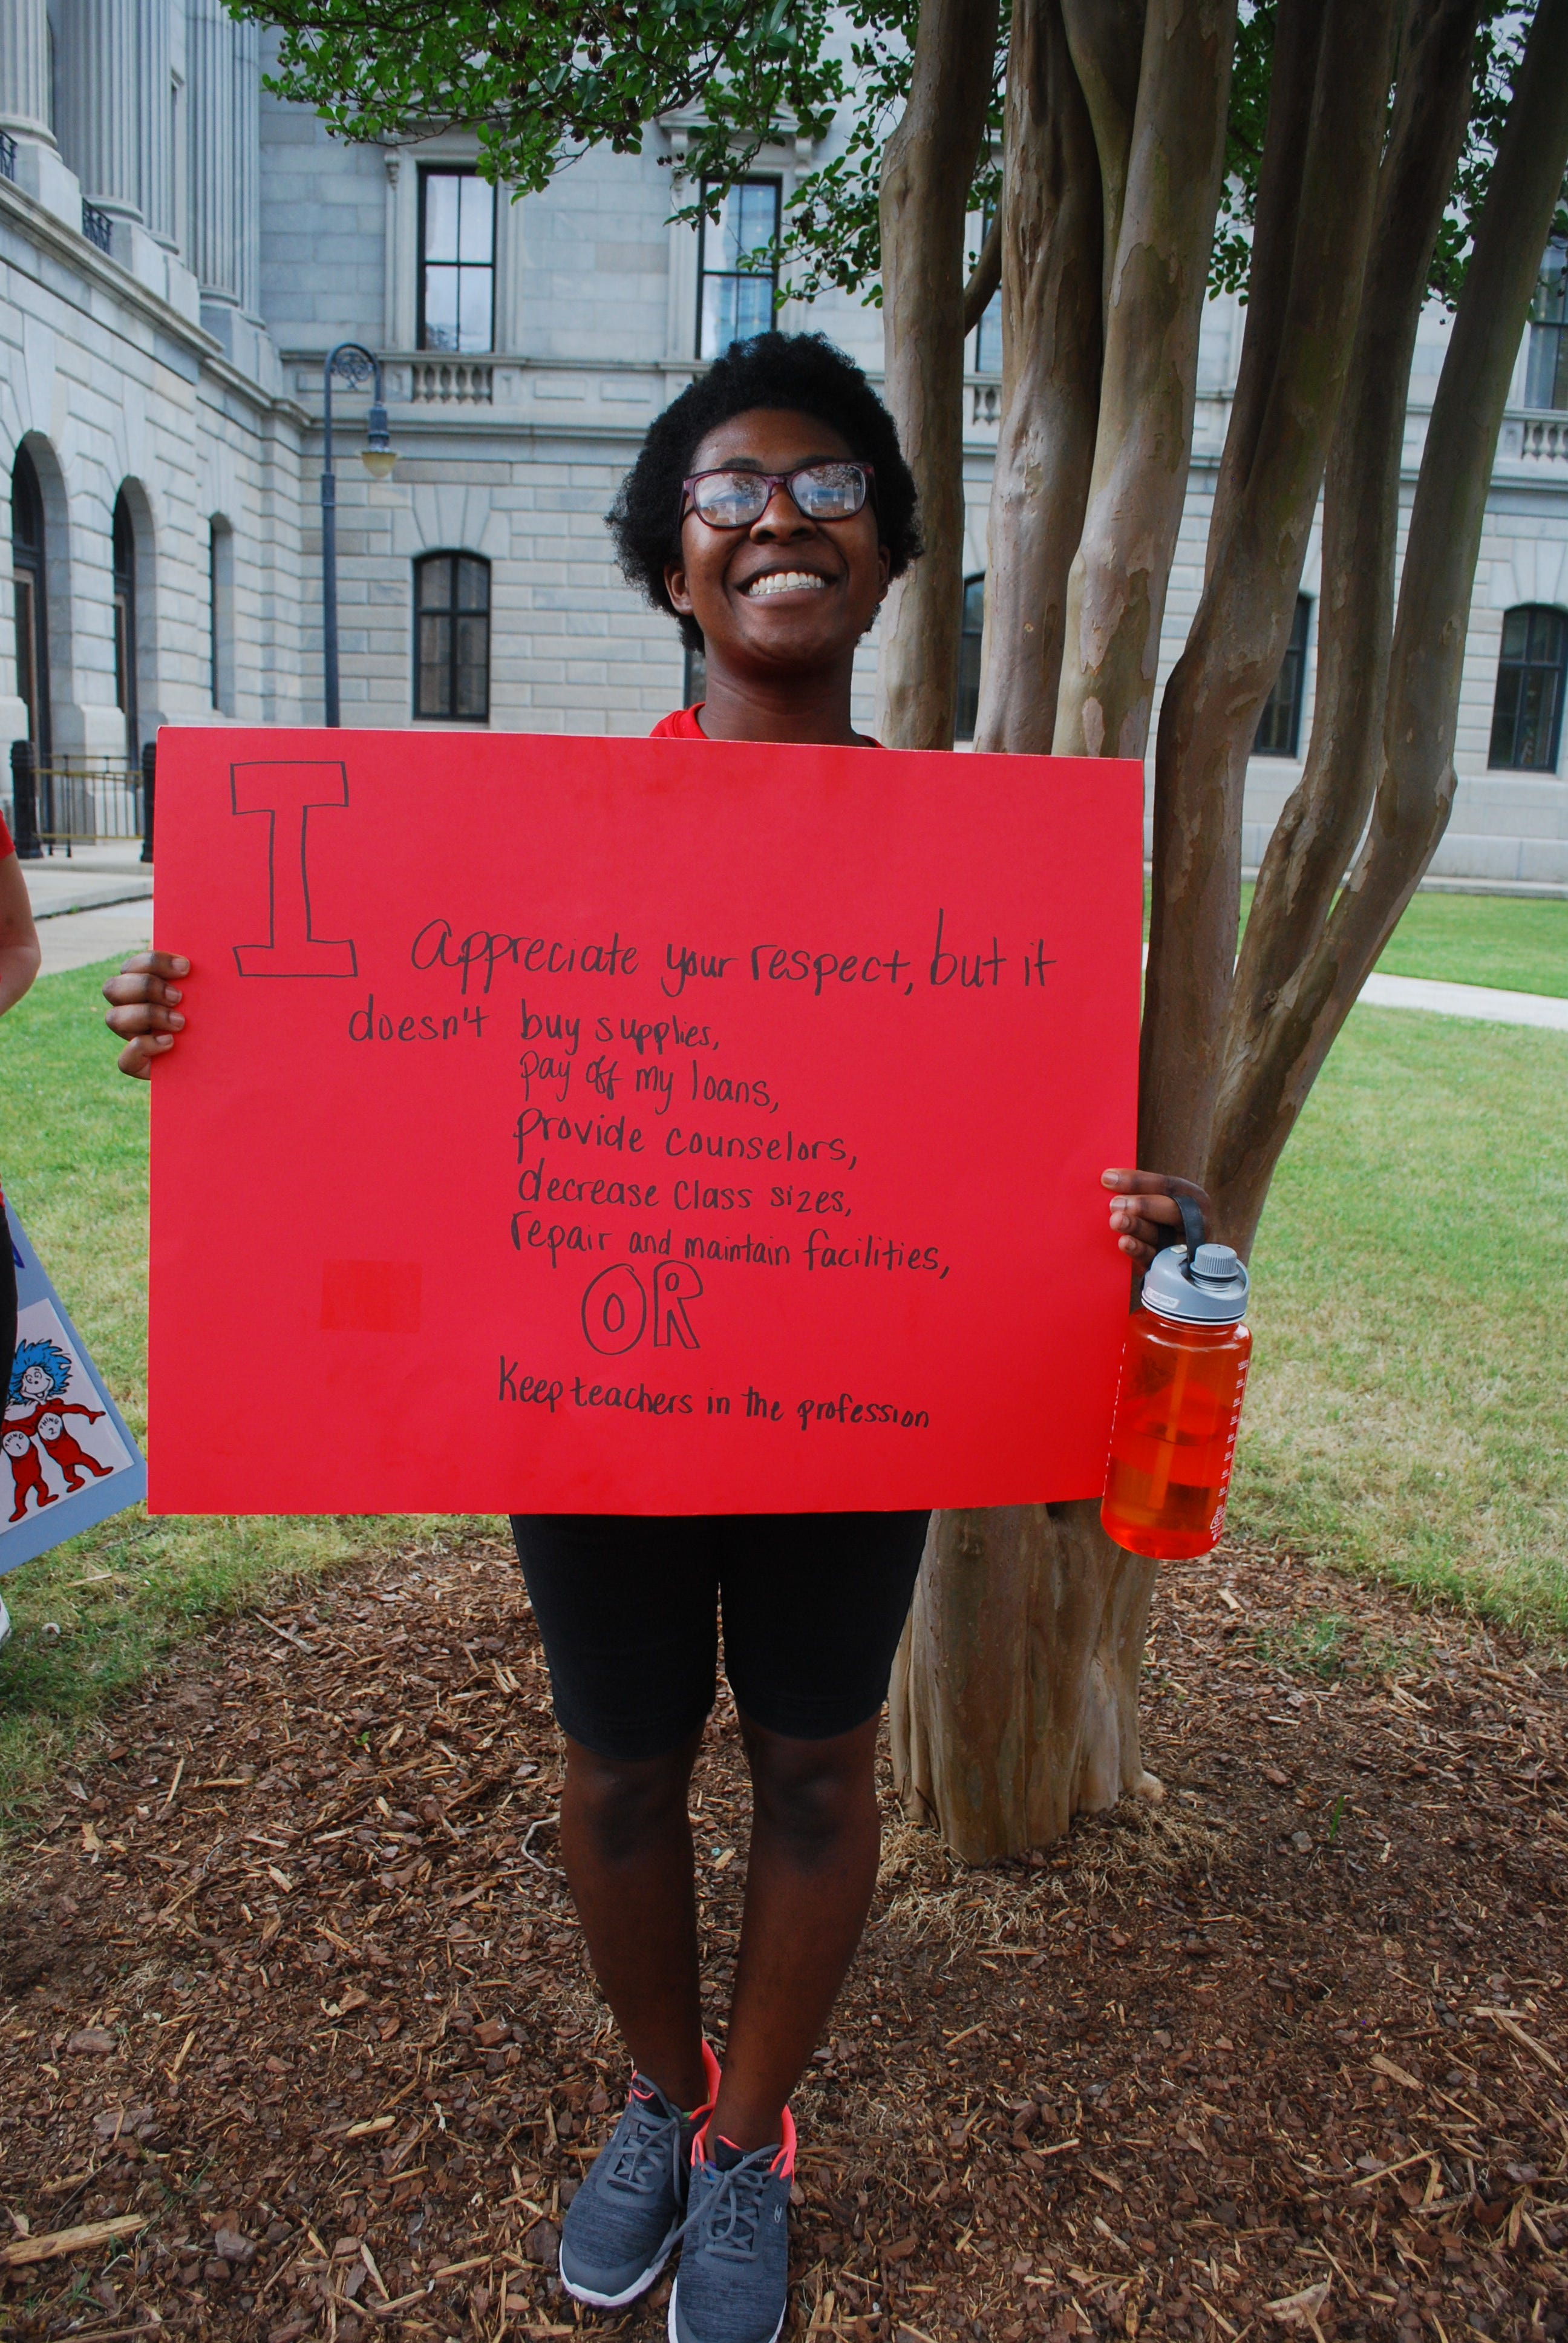 I appreciate your respect, but it
doesn't buy supplies,
pay off my loans,
provide counselors,
decrease class sizes,
repair and maintain facilities,
OR
Keep teachers in the profession
THING 1
THING 2